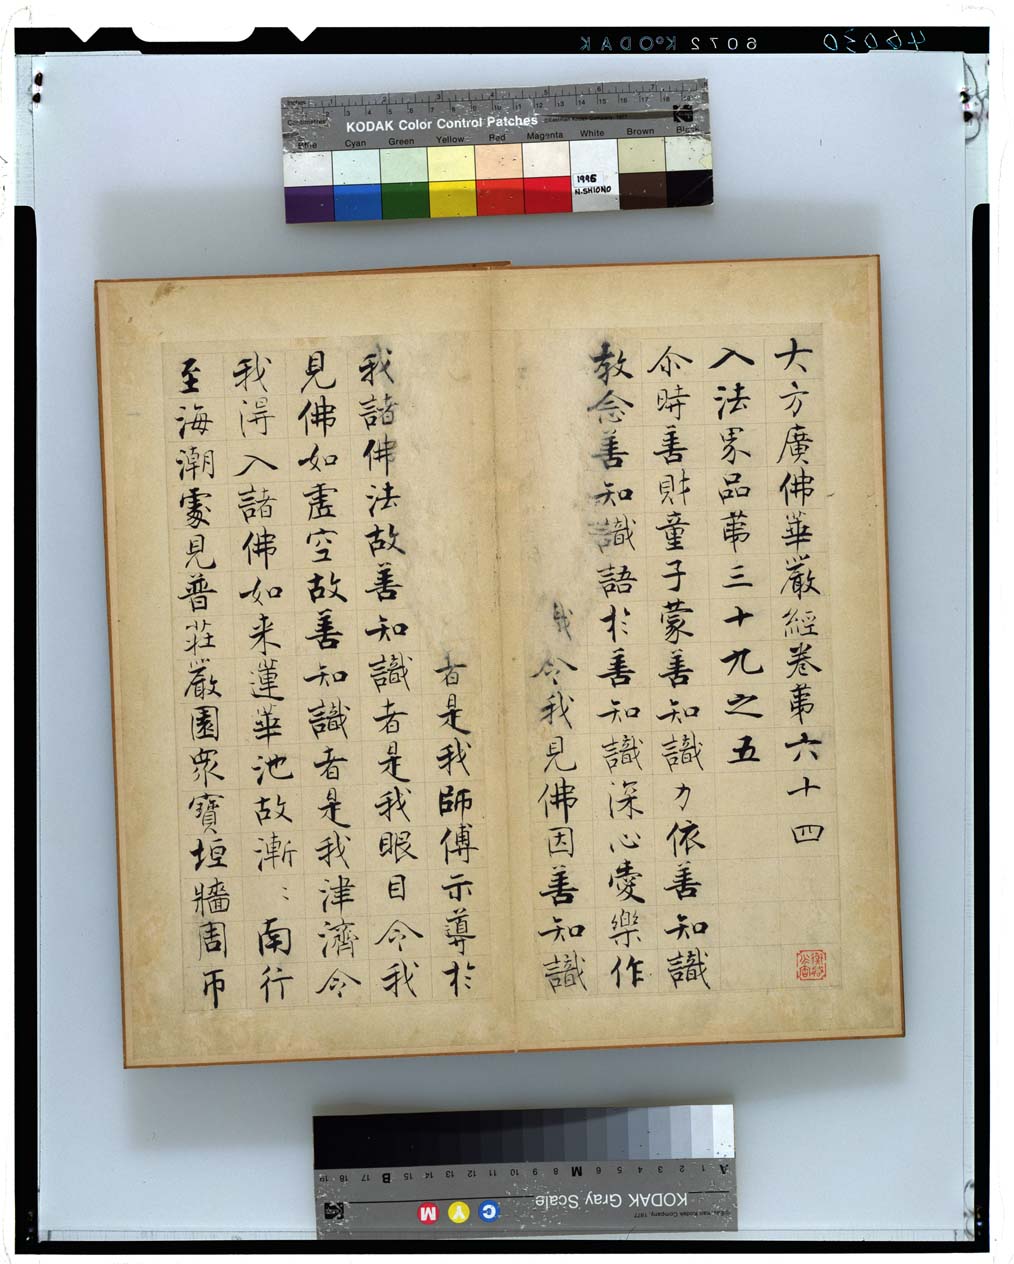 46030
6072 KODAK
Inches
Centimetres
KODAK Color Control Patches
Blue Cyan Green Yellow Red Magenta White Brown Black
1995
N.SHIONO
大方廣佛華嚴經卷苐六十四
入法界品苐三十九之五
尒時善財童子蒙善知識力依善知識
教念善知識語扵善知識深心愛樂作
我令我見佛因善知識
者是我師傅示導扵
我諸佛法故善知識者是我眼目令我
見佛如虚空故善知識者是我津濟令
我淂入諸佛如来蓮華池故漸〻南行
至海潮處見普莊嚴園衆寶垣牆周帀
KODAK Gray Scale
C Y M
A 1 2 3 4 5 6 M 8 9 10 11 12 13 14 15 B 17 18 19